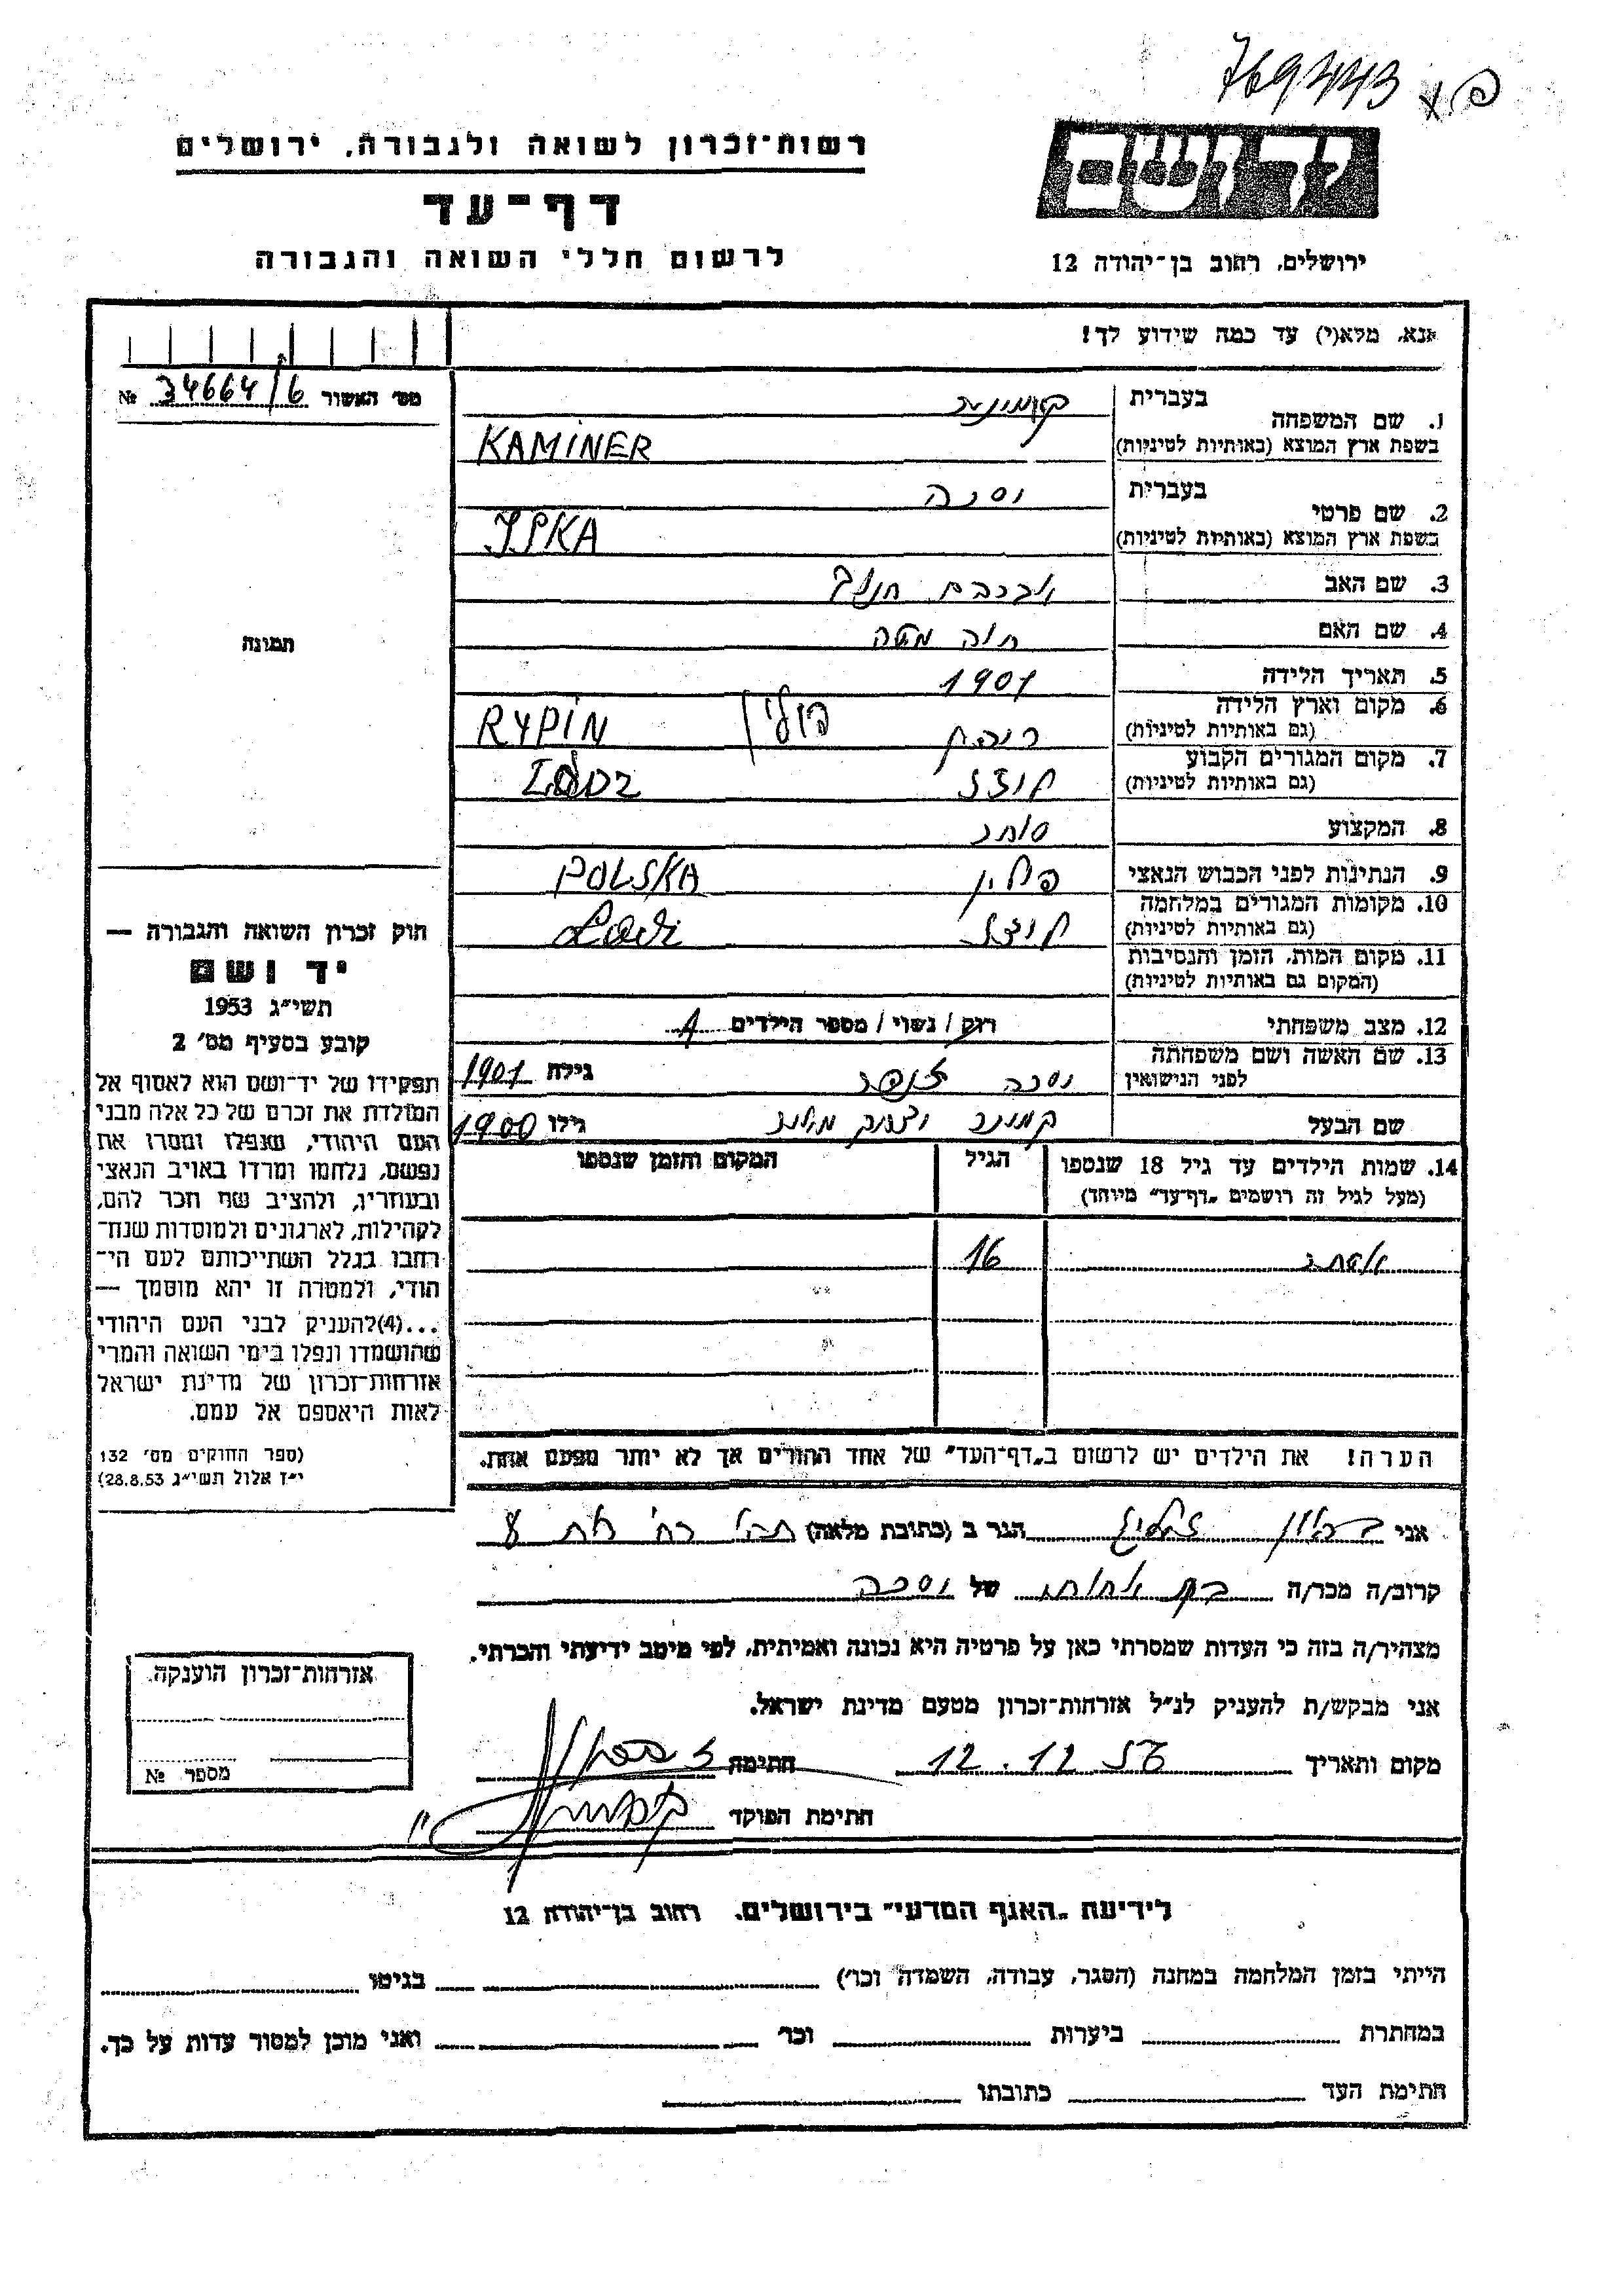 769443
רשות־זכרון לשואה ולגבורה, ירושלים
דף־עד
לרשום חללי השואה והגבורה
יד ושם
ירושלים, רחוב בן־יהודה 12
אנא, מלא(י) עד כמה שידוע לך!
מס׳ האשור 34664/6 №
תמונה
1. שם המשפחה
בעברית
בשפת ארץ המוצא (באותיות לטיניות) KAMINER
2. שם פרטי
בעברית
בשפת ארץ המוצא (באותיות לטיניות)
3. שם האב אברהם
4. שם האם חוה
5. תאריך הלידה 1901
6. מקום וארץ הלידה
(גם באותיות לטיניות) ריפין פולין RYPIN
7. מקום המגורים הקבוע
(גם באותיות לטיניות) לודז׳ ŁÓDZ
8. המקצוע סוחר
9. הנתינות לפני הכבוש הנאצי פולין POLSKA
10. מקומות המגורים במלחמה
(גם באותיות לטיניות) לודז׳ Łodz
11. מקום המות, הזמן והנסיבות
(המקום גם באותיות לטיניות)
12. מצב משפחתי רוק / נשוי / מספר הילדים 1
13. שם האשה ושם משפחתה
לפני הנישואין גילה 1901
שם הבעל קמינר גילו 1900
14. שמות הילדים עד גיל 18 שנספו
(מעל לגיל זה רושמים „דף־עד״ מיוחד)
הגיל
המקום והזמן שנספו
אסתר 16
הערה! את הילדים יש לרשום ב„דף־העד״ של אחד ההורים אך לא יותר מפעם אחת.
חוק זכרון השואה והגבורה —
יד ושם
תשי״ג 1953
קובע בסעיף מס׳ 2
תפקידו של יד־ושם הוא לאסוף אל
המולדת את זכרם של כל אלה מבני
העם היהודי, שנפלו ומסרו את
נפשם, נלחמו ומרדו באויב הנאצי
ובעוזריו, ולהציב שם וזכר להם,
לקהילות, לארגונים ולמוסדות שנח־
רבו בגלל השתייכותם לעם הי־
הודי, ולמטרה זו יהא מוסמך —
...(4)להעניק לבני העם היהודי
שהושמדו ונפלו בימי השואה והמרי
אזרחות־זכרון של מדינת ישראל
לאות היאספם אל עמם.
(ספר החוקים מס׳ 132
י״ז אלול תשי״ג 28.8.53)
אני הגר ב (כתובת מלאה)
קרוב/ה מכר/ה של
מצהיר/ה בזה כי העדות שמסרתי כאן על פרטיה היא נכונה ואמיתית, לפי מיטב ידיעתי והכרתי.
אני מבקש/ת להעניק לנ״ל אזרחות־זכרון מטעם מדינת ישראל.
מקום ותאריך 12.12 חתימה
חתימת הפוקד
אזרחות־זכרון הוענקה.
מספר №
לידיעת „האגף המדעי״ בירושלים, רחוב בן־יהודה 12
הייתי בזמן המלחמה במחנה (הסגר, עבודה, השמדה וכו׳) בגיטו
במחתרת ביערות וכו׳ ואני מוכן למסור עדות על כך.
חתימת העד כתובתו